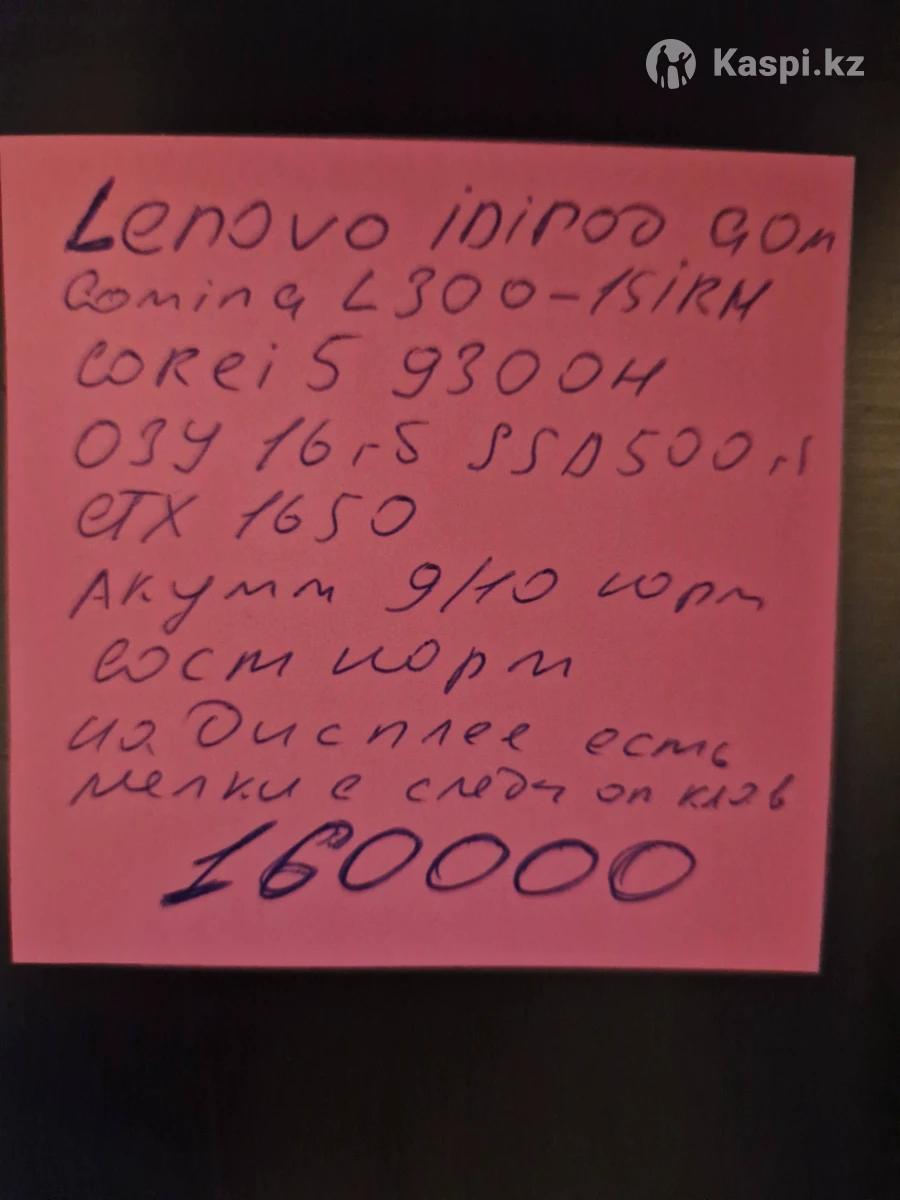 Kaspi.kz
Lenovo iDiPOD GOM
Goming L300-15iRH
CORei5 9300H
ОЗУ 16гб SSD500гб
GTX 1650
Акумм 9/10 норм
Сост норм
на Дисплее есть
мелкие следы от клав
160000